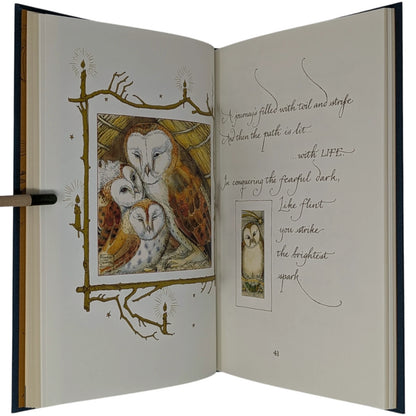 A journey's filled with toil and strife
And then the path is lit
with LIFE.
In conquering the fearful dark,
Like flint
you strike
the brightest
spark
43